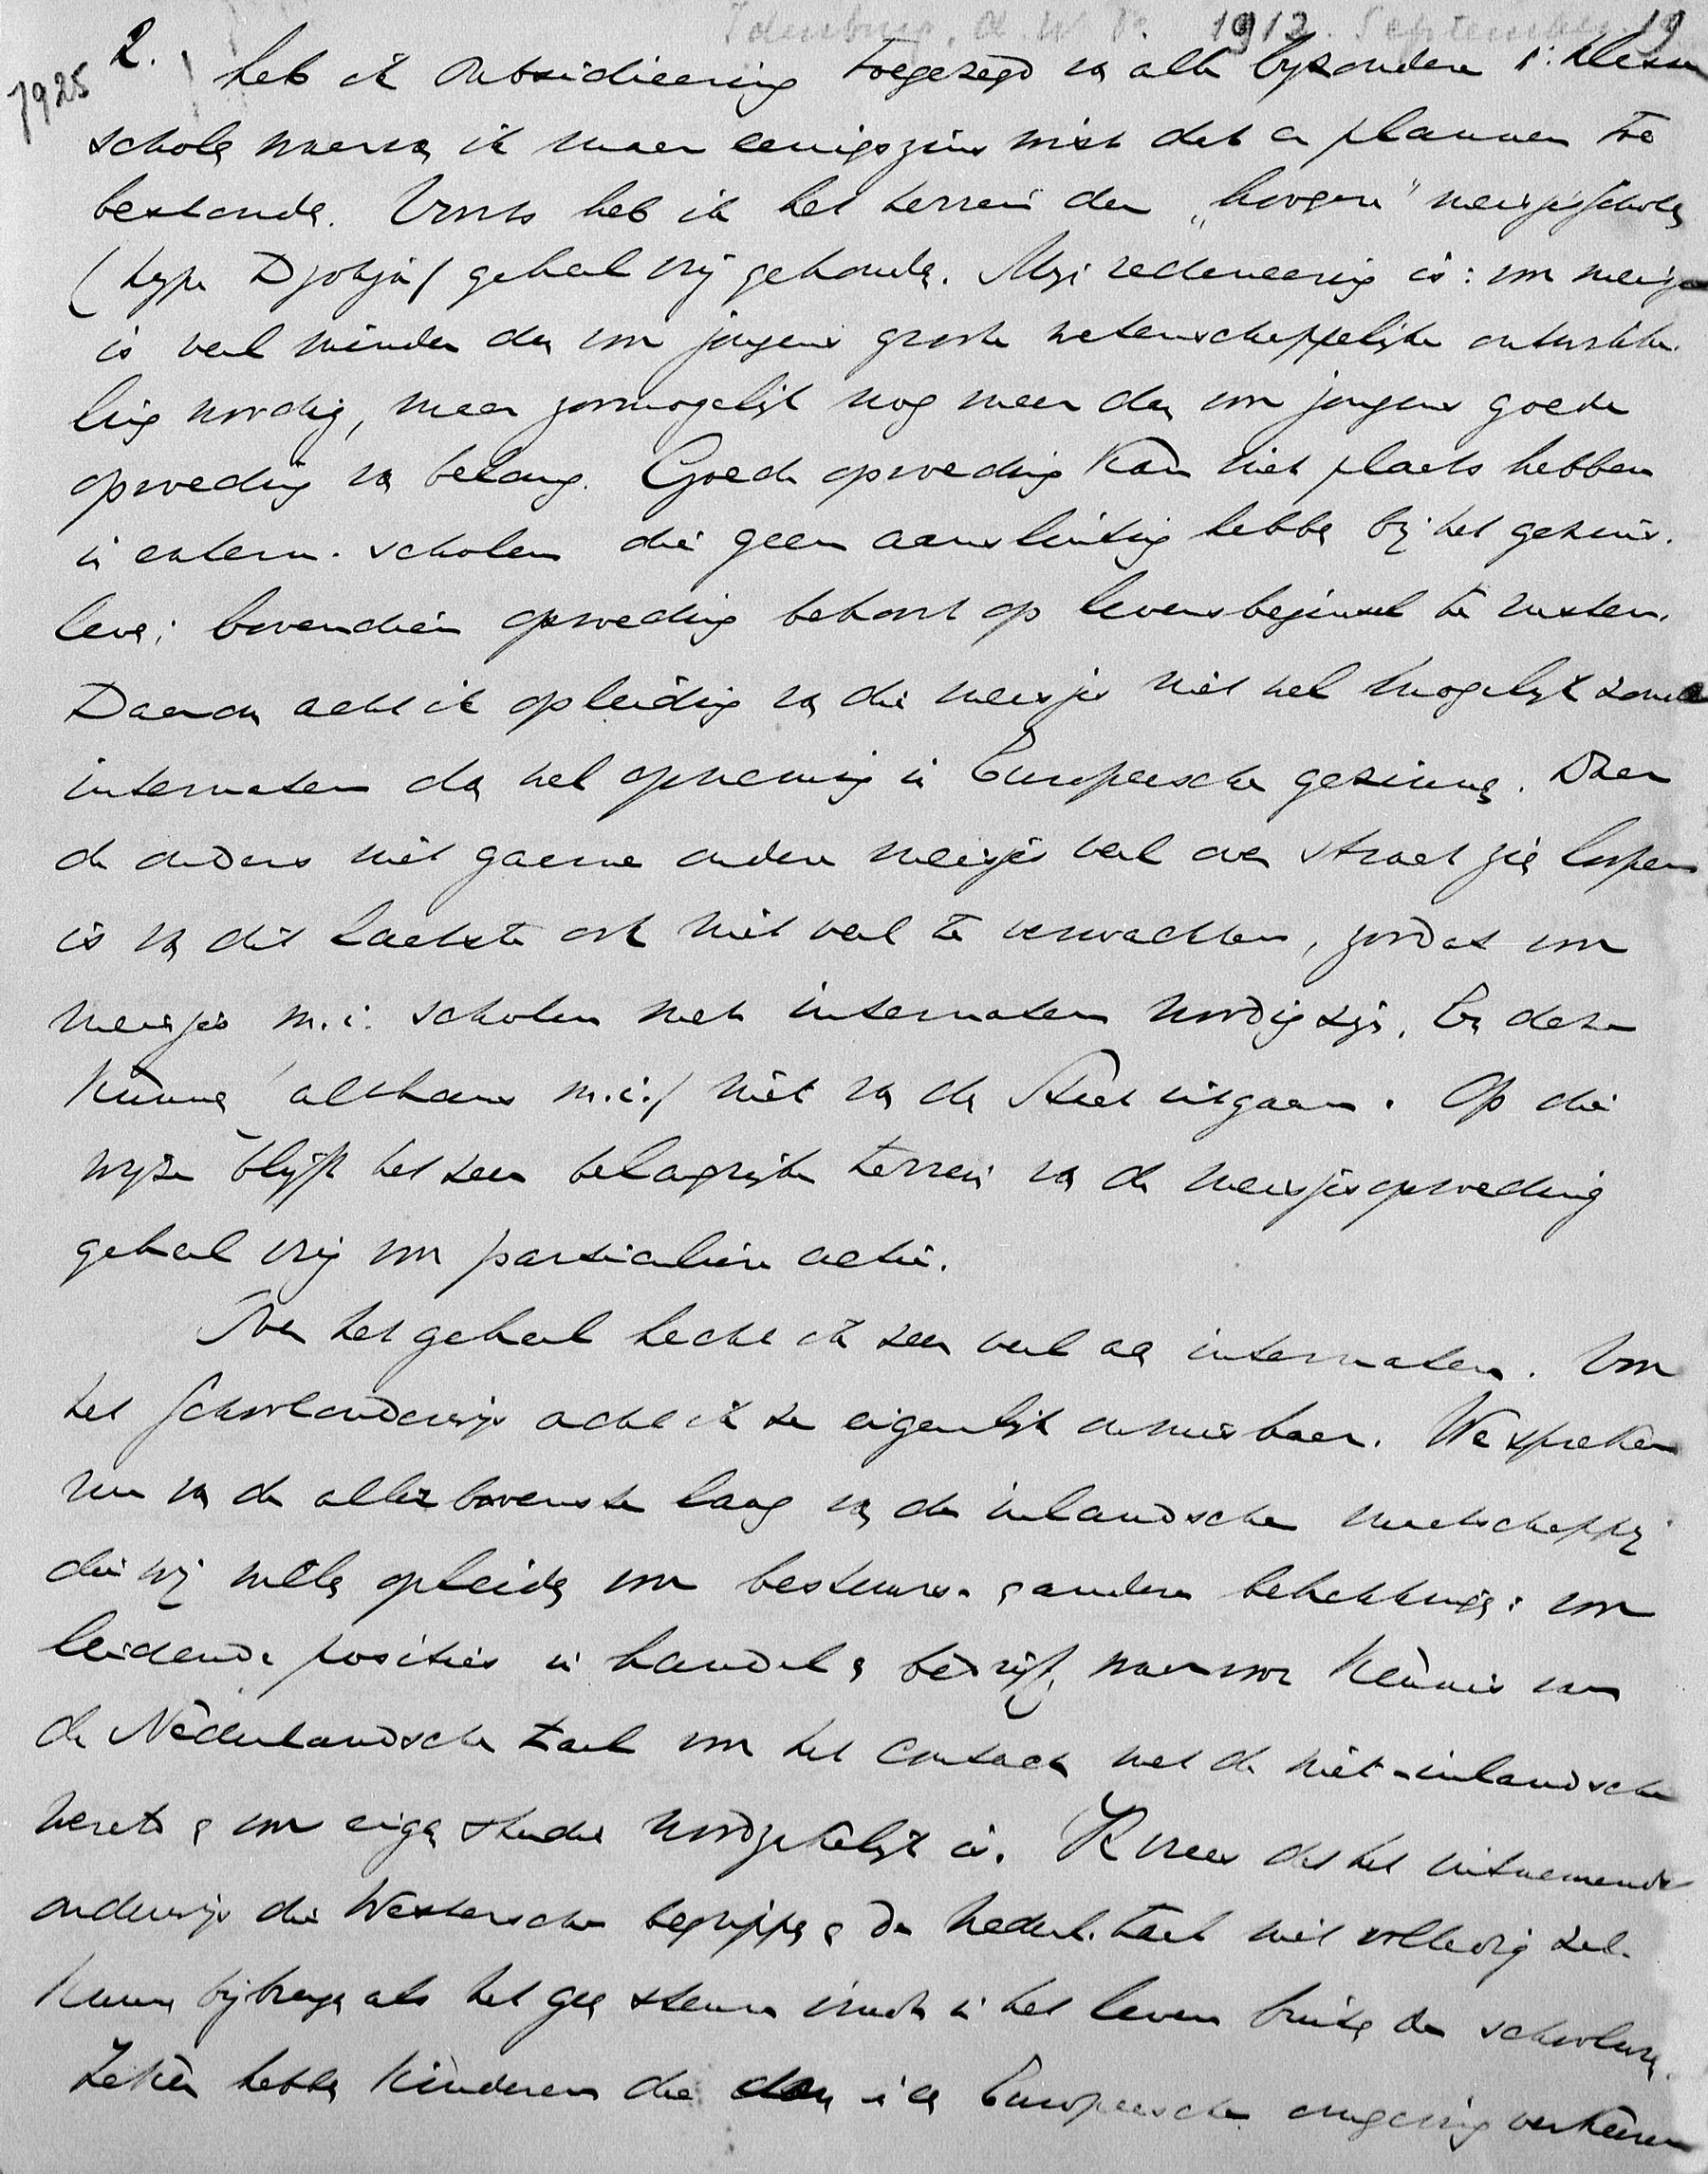 Idenburg, A. W. F. 1913. September 19
1925
2. heb ik subsidieering toegezegd van alle byzondere 1e klasse
scholen waarvan ik maar eenigszins wist dat er plannen toe
bestonden. Voorts heb ik het terrein der „hoogere" meisjesscholen
(type Djokja) geheel vrij gehouden. Mijn redeneering is: voor meisjes
is veel minder dan voor jongens groote wetenschappelijke ontwikke-
ling noodig, maar zoo mogelijk nog meer dan voor jongens goede
opvoeding van belang. Goede opvoeding kan niet plaats hebben
in extern. scholen die geen aansluiting hebben bij het gezins-
leven; bovendien opvoeding behoort op levensbeginsel te rusten.
Daarom acht ik opleiding van die meisjes niet wel mogelijk zonder
internaten dan wel opneming in Europeesche gezinnen. Daar
de ouders niet gaarne oudere meisjes veel over straat zien loopen
is van dit laatste ook niet veel te verwachten, zoodat voor
meisjes m.i. scholen met internaten noodig zijn. En deze
kunnen (althans m.i.) niet van den Staat uitgaan. Op die
wyze blijft het zeer belangrijke terrein van de meisjesopvoeding
geheel vrij voor particuliere actie.
Over het geheel hecht ik zeer veel aan internaten. Voor
het schoolonderwijs acht ik ze eigenlijk onmisbaar. We spreken
nu van de allerbovenste laag van de inlandsche maatschappij
die wij willen opleiden voor bestuurs- en andere betrekkingen: voor
leidende posities in handel en bedrijf, waarvoor kennis van
de Nederlandsche taal voor het contact met de niet-inlandsche
wereld en voor eigen studie noodzakelijk is. Ik vrees dat het uitnemendste
onderwijs die Westersche begrippen en de Nederl. taal niet volledig zal
kunnen bijbrengen als het geen steun vindt in het leven buiten de schooluren.
Zeker hebben kinderen die dan in een Europeesche omgeving verkeeren